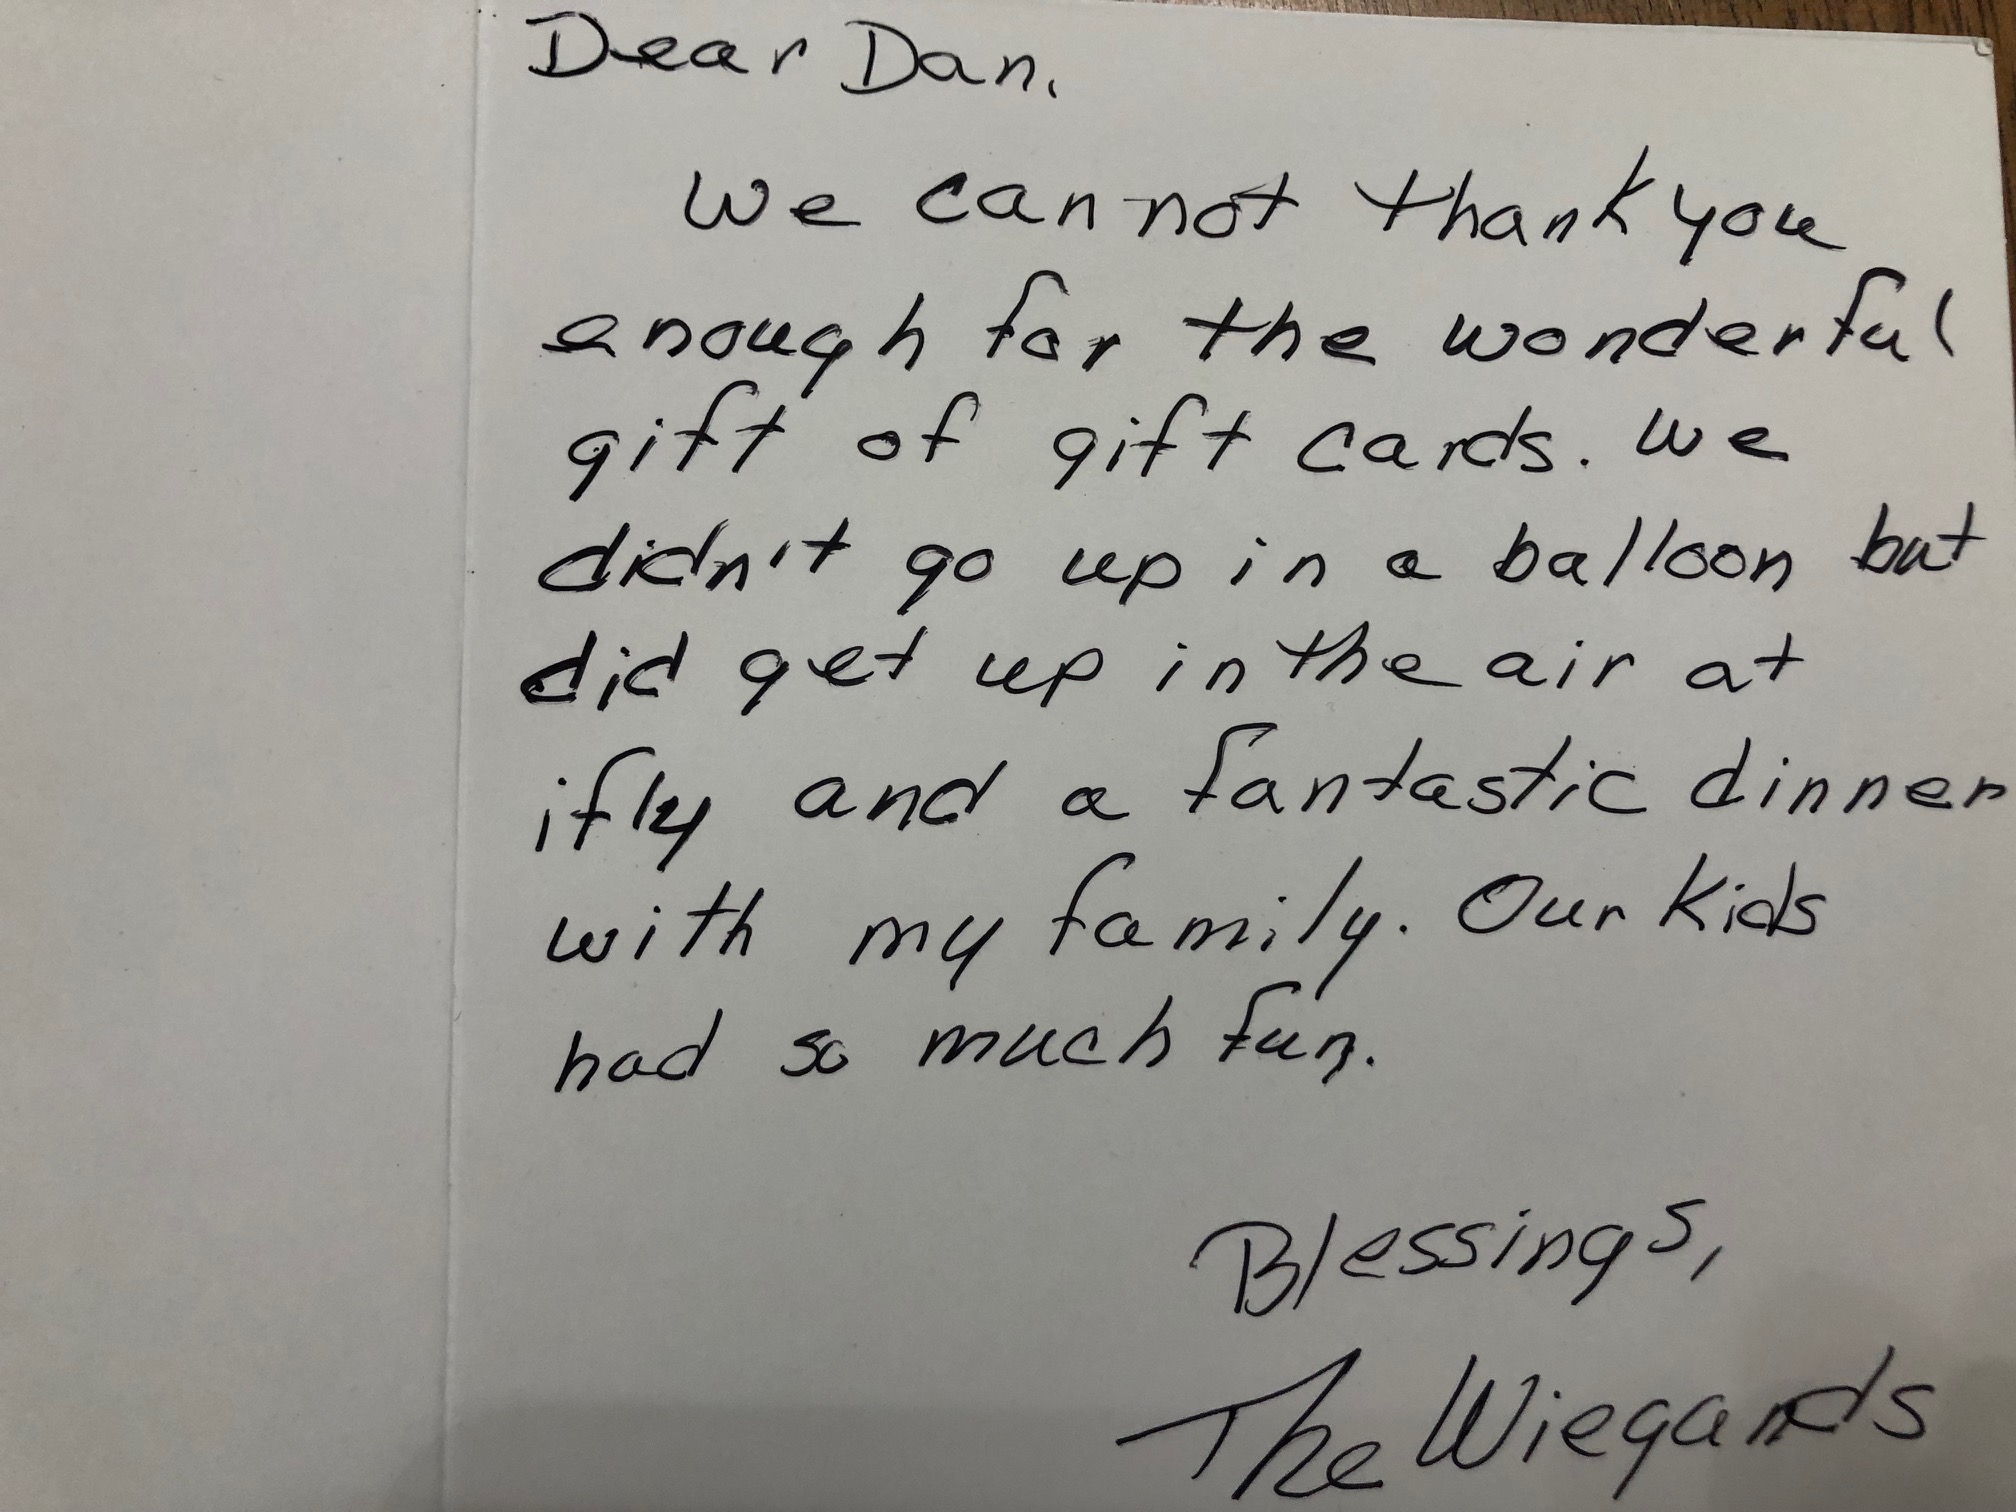 Dear Dan,
We cannot thank you
enough for the wonderful
gift of gift cards. We
didn't go up in a balloon but
did get up in the air at
ifly and a fantastic dinner
with my family. Our Kids
had so much fun.
Blessings,
The Wiegands